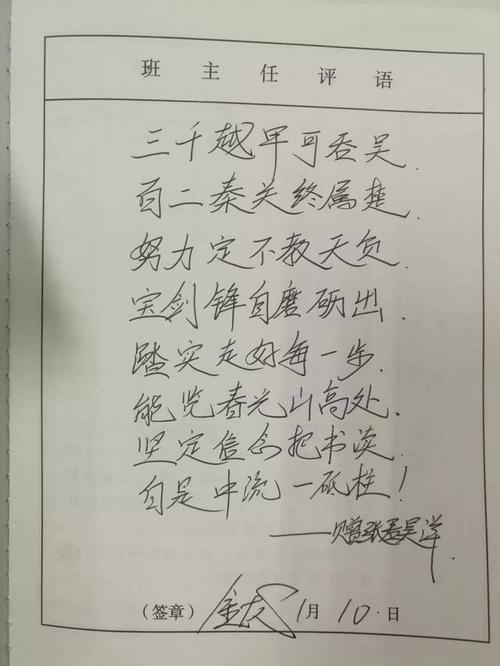 班主任评语
三千越甲可吞吴.
百二秦关终属楚.
努力定不教天负.
宝剑锋自磨砺出.
踏实走好每一步.
能览春光山高处.
坚定信念把书读
自是中流一砥柱!
——赠张吴洋
(签章) 1月10日